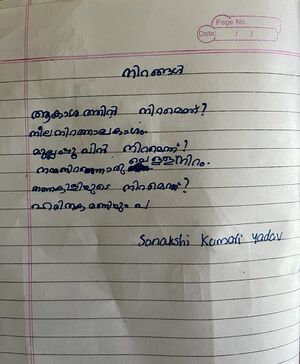 Page No.
Date: / /
നിറങ്ങൾ
ആകാശത്തിന്റെ നിറമെന്ത്?
നീലനിറത്താലാകാശം
മുല്ലപ്പൂവിൻ നിറമെന്ത്?
വെള്ളനിറം.
തത്തക്കിളിയുടെ നിറമെന്ത്?
Sonakshi Kumari Yadav